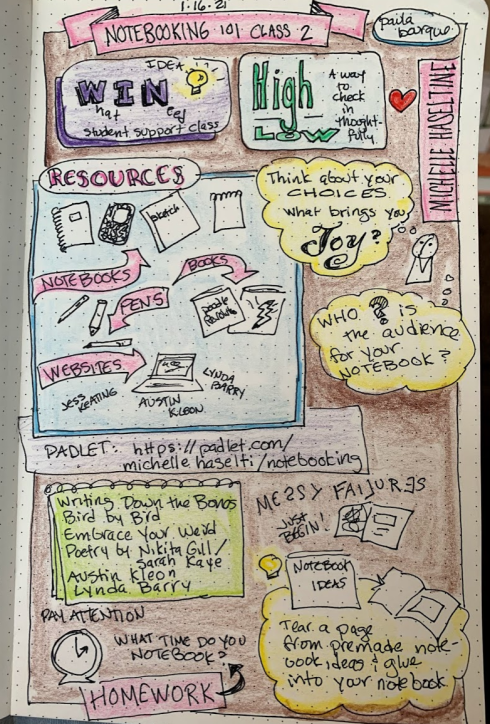 1.16.21
NOTEBOOKING 101 CLASS 2
paula
bourque
MICHELLE HASELTINE
IDEA
WIN
hat I eed
student support class
High
LOW
A way
to check
in
thought-
fully.
RESOURCES
sketch
NOTEBOOKS
BOOKS
PENS
doodle
revolution
WEBSITES
JESS
KEATING
AUSTIN
KLEON
LYNDA
BARRY
Think about your
CHOICES
what brings you
Joy?
WHO ? is
the audience
for your
NOTEBOOK?
PADLET: https://padlet.com/
michelle haselti/notebooking
Writing Down the Bones
Bird by Bird
Embrace Your Weird
Poetry by Nikita Gill/
Sarah Kaye
Austin Kleon
Lynda Barry
MESSY FAILURES
JUST
BEGIN!
NOTEBOOK
IDEAS
Tear a page
from premade note-
book ideas & glue
into your notebook
PAY ATTENTION
WHAT TIME DO YOU
NOTEBOOK?
HOMEWORK